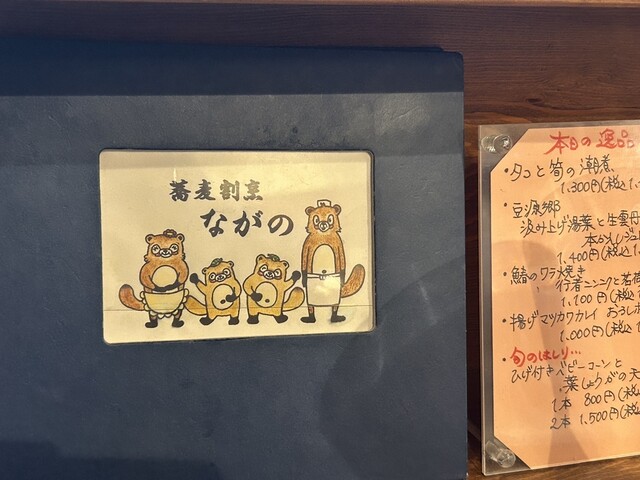 蕎麦割烹
ながの
本日の逸品
・タコと筍の潮煮
1.300円(税込1.
・豆源郷
汲み上げ湯葉と生雲丹
本かえしジュレ
1.400円(税込
・鰆のワラ焼き
行者ニンニクと若
1.100円(税込
・揚げマツカワカレイ おろしポ
1.000円(税込
・旬のはしり…
ひげ付きベビーコーンと
葉しょうがの天
1本 800円(税込
2本 1.500円(税込